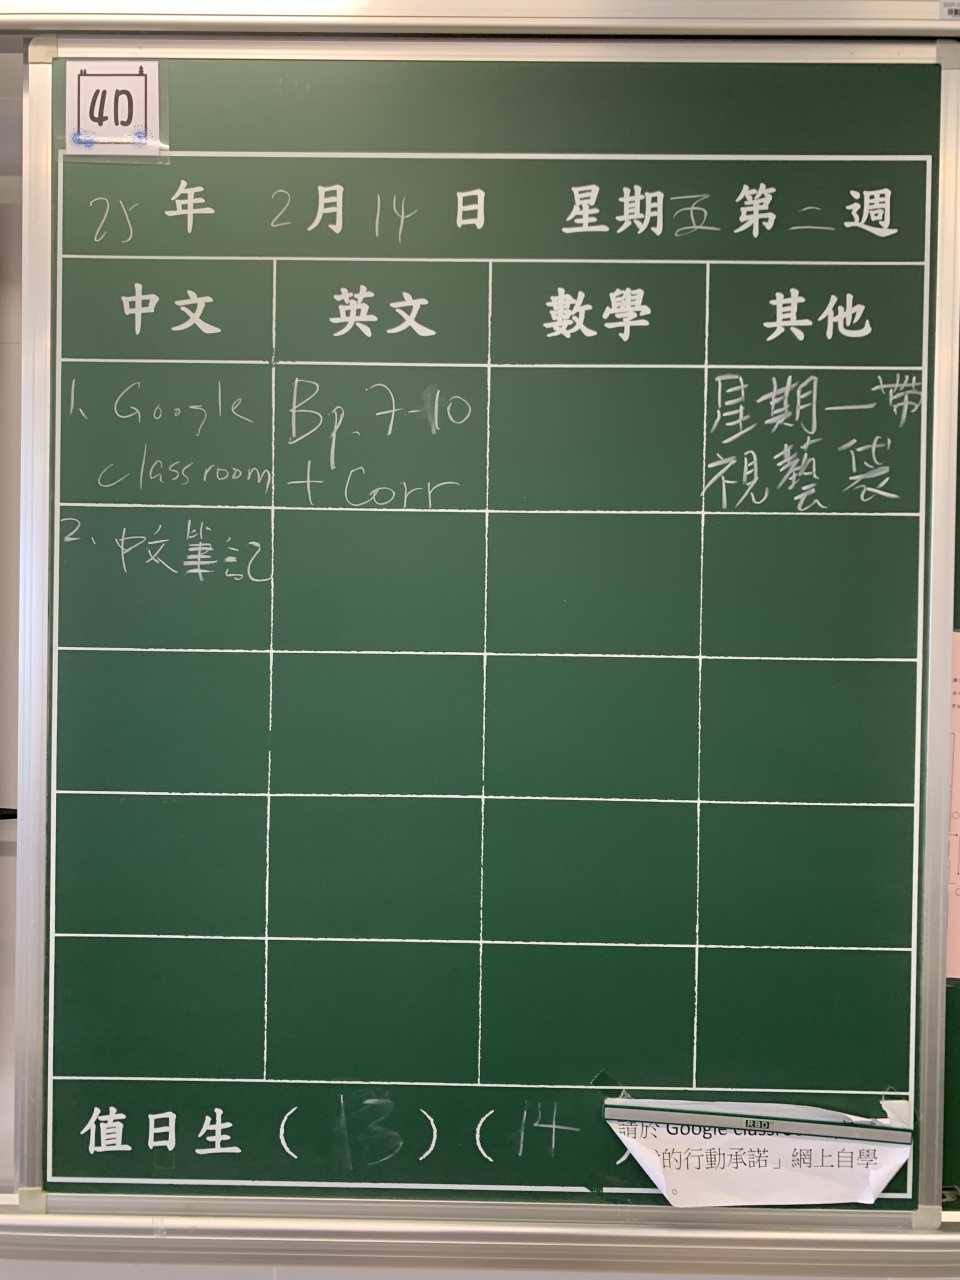 4D
25 年 2 月 14 日 星期五第二週
中文 英文 數學 其他
1、Google
classroom
Bp.7-10
+ Corr
星期一帶
視藝袋
2、中文筆記
值日生 ( 13 ) ( 14 )
RBD
請於 Google
的行動承諾」網上自學
。